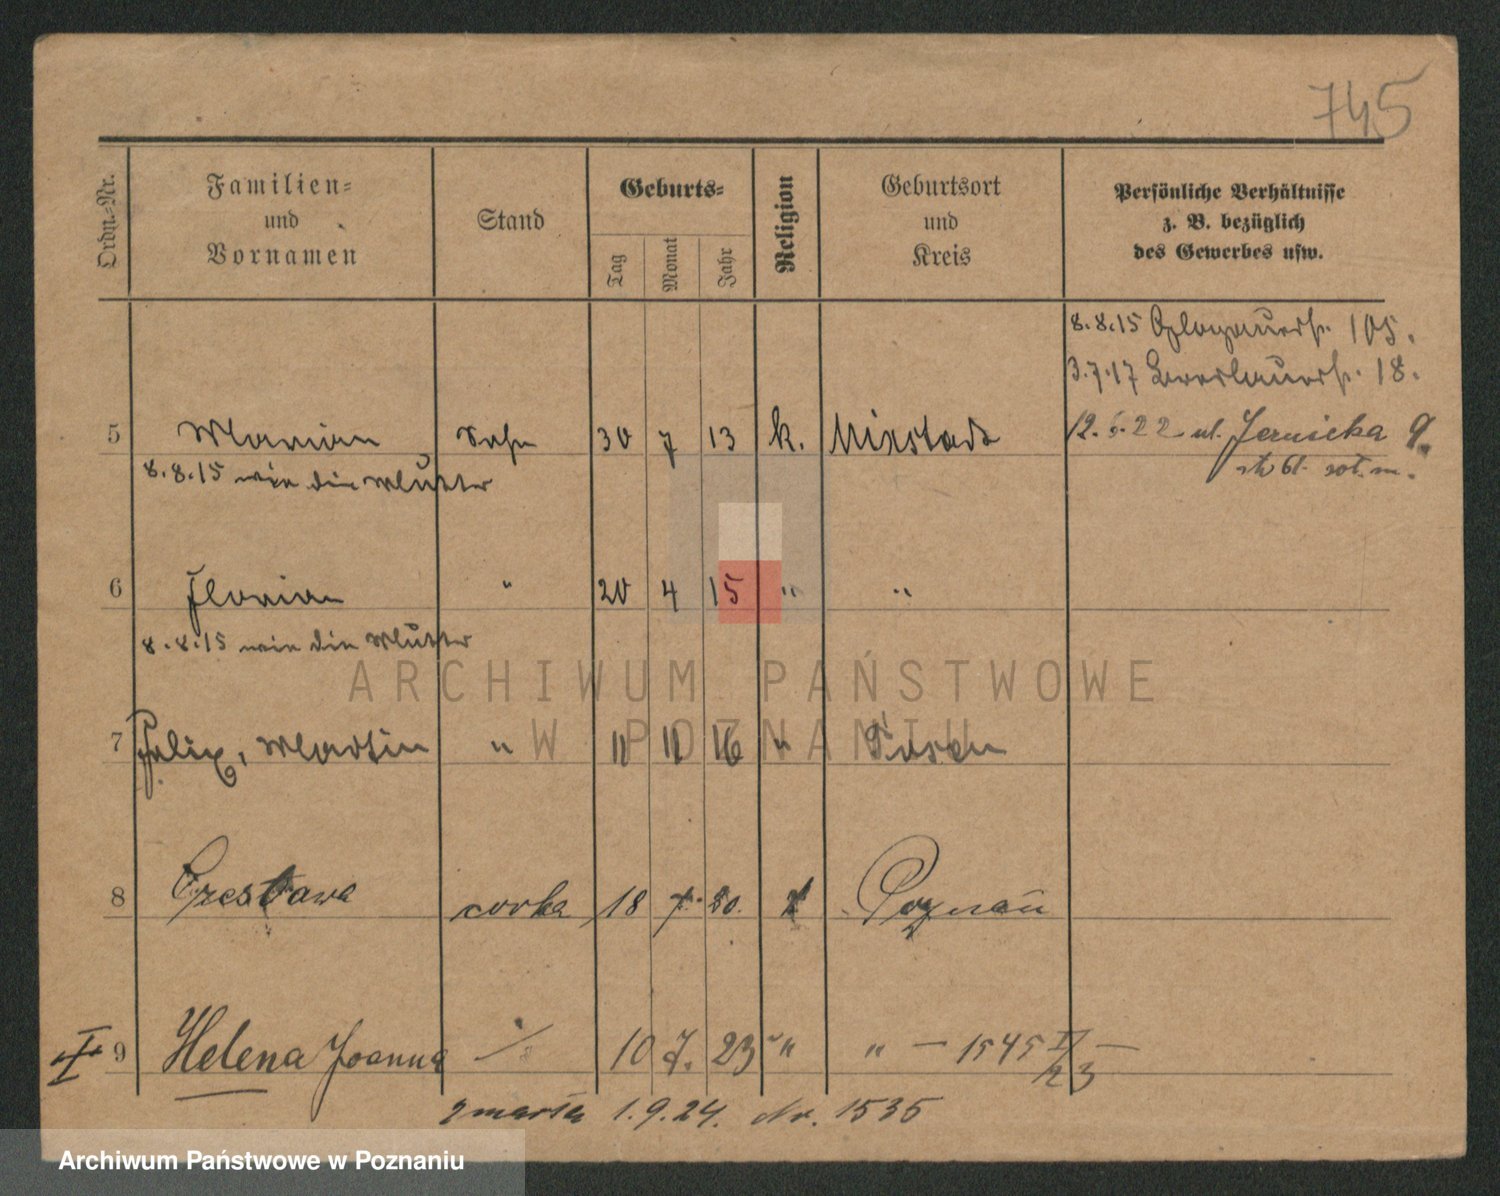 745
Ordn.-Nr.
Familien-
und
Vornamen
Stand
Geburts-
Tag
Monat
Jahr
Religion
Geburtsort
und
Kreis
Persönliche Verhältnisse
z. B. bezüglich
des Gewerbes usw.
8.8.15 Glogauerstr. 105.
3.7.17 Breslauerstr. 18.
12. 5. 22 ul. Żernicka 9.
5 Marian Sohn 30 7 13 k. Mixstadt
8.8.15 wie die Mutter
6 Florian " 20 4 15 " "
8.8.15 wie die Mutter
7 Felix, Martin " 11 11 16 " Posen
8 Czesława córka 18 7. 20. Poznań
9 Helena Joanna 10 7. 23 " " — 1545
zmarła 1.9.24. Nr. 1535
ARCHIWUM PAŃSTWOWE
W POZNANIU
Archiwum Państwowe w Poznaniu